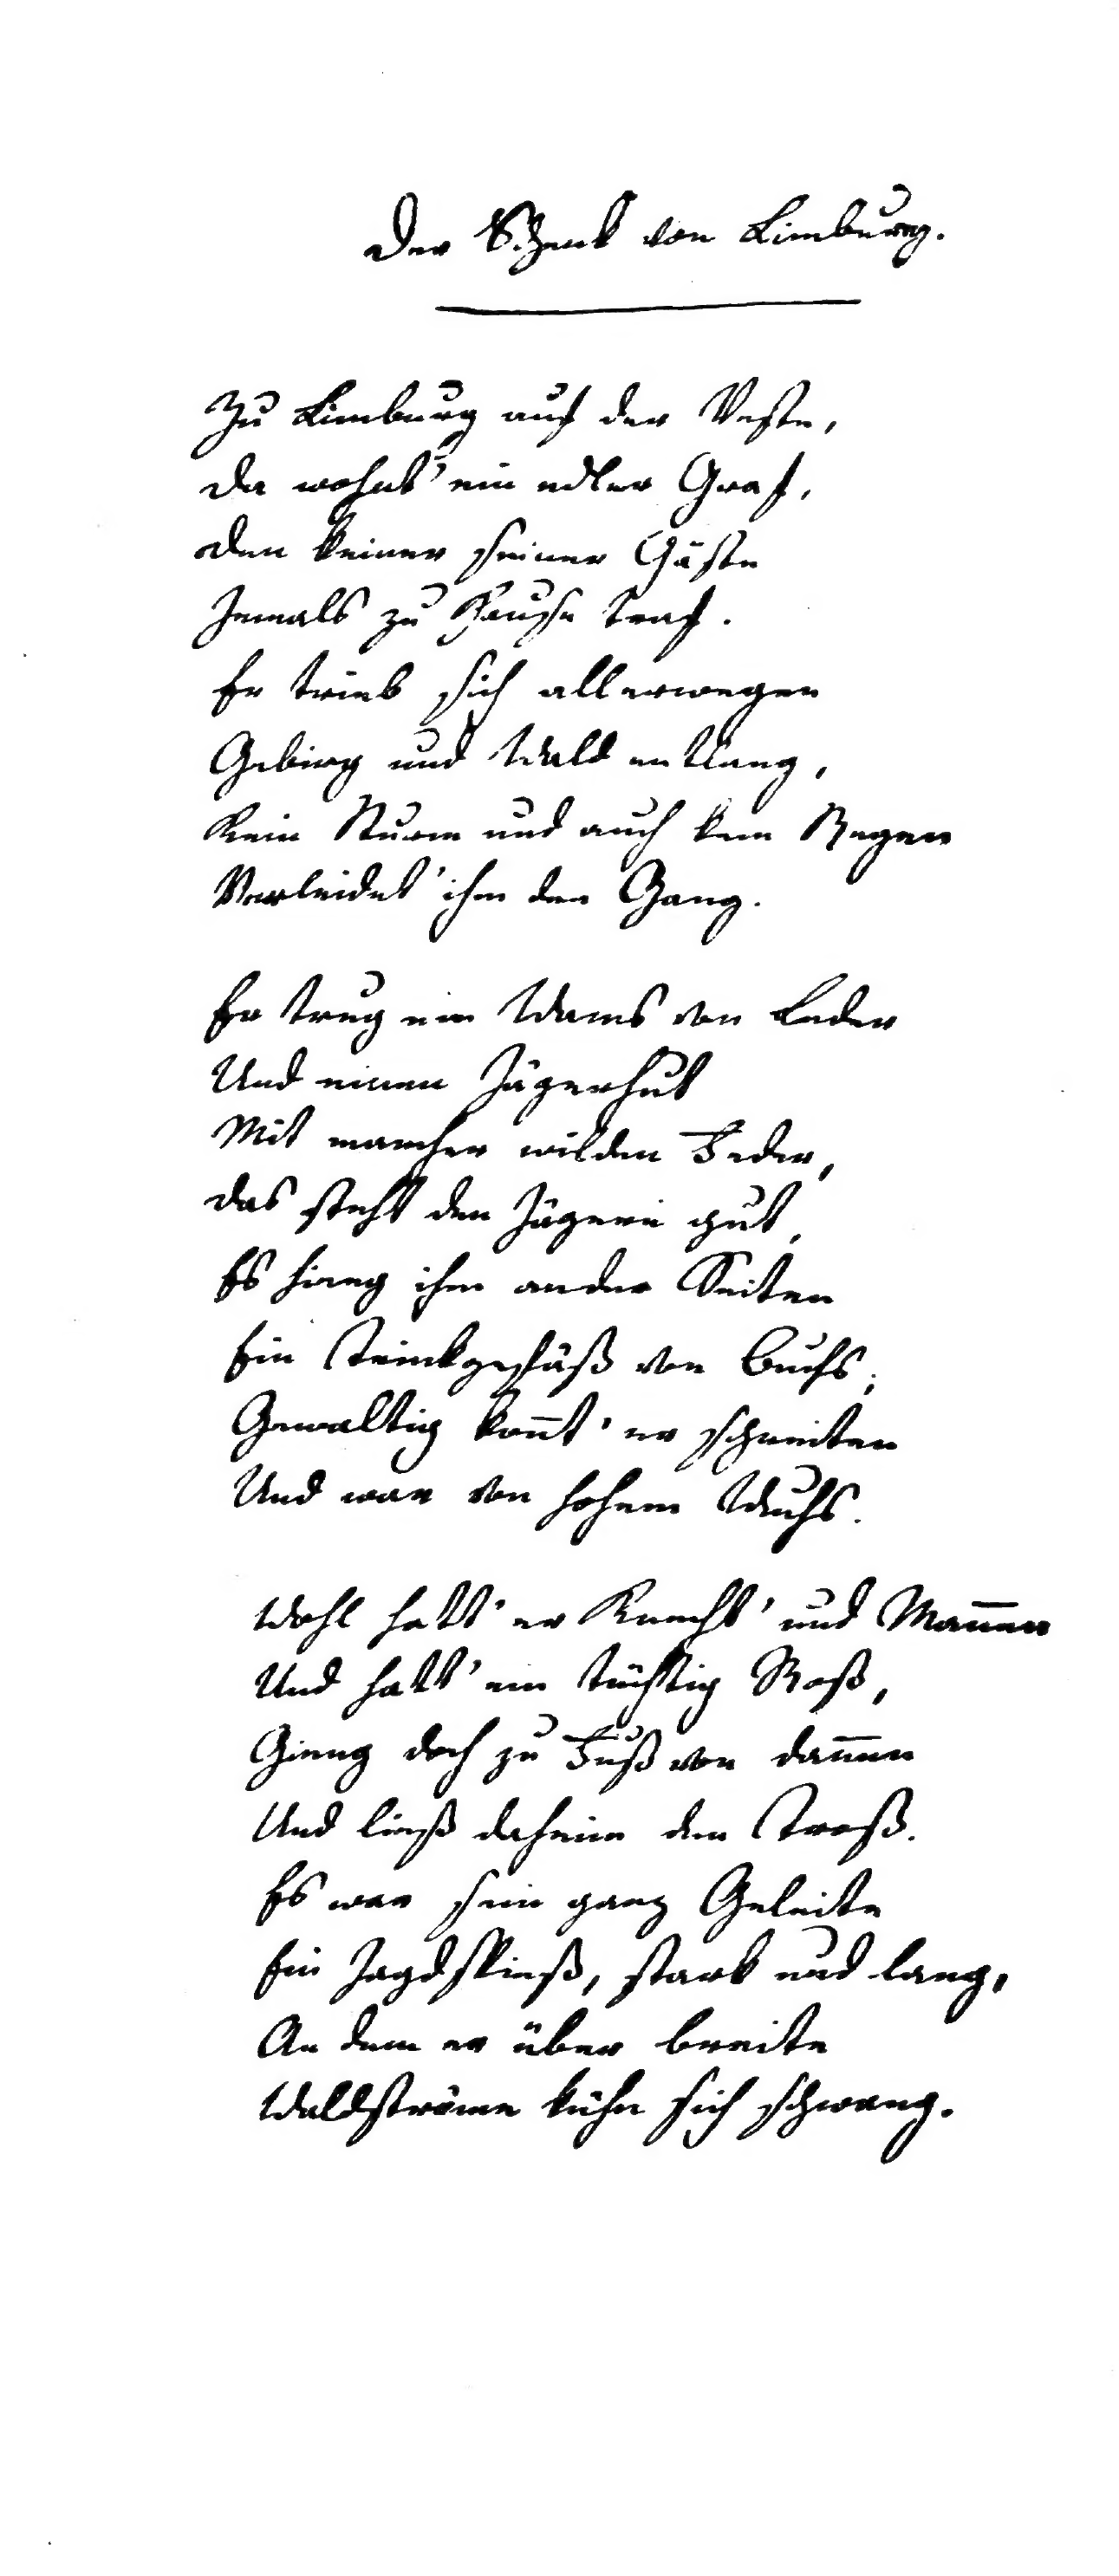 Der Schenk von Limburg.
Zu Limburg auf der Veste,
Da wohnt' ein edler Graf,
Den keiner seiner Gäste
Jemals zu Hause traf.
Er trieb sich allerwegen
Gebirg und Wald entlang,
Kein Sturm und auch kein Regen
Verleidet' ihm den Gang.
Er trug ein Wams von Leder
Und einen Jägerhut
Mit mancher wilden Feder,
Das steht den Jägern gut,
Es hieng ihm an der Seiten
Ein Trinkgefäß von Buchs;
Gewaltig kon̄t' er schreiten
Und war von hohem Wuchs.
Wohl hatt' er Knecht' und Man̄en
Und hatt' ein tüchtig Roß,
Gieng doch zu Fuß von dan̄en
Und ließ daheim den Troß.
Es war sein ganz Geleite
Ein Jagdspieß, stark und lang,
An dem er über breite
Waldströme kühn sich schwang.